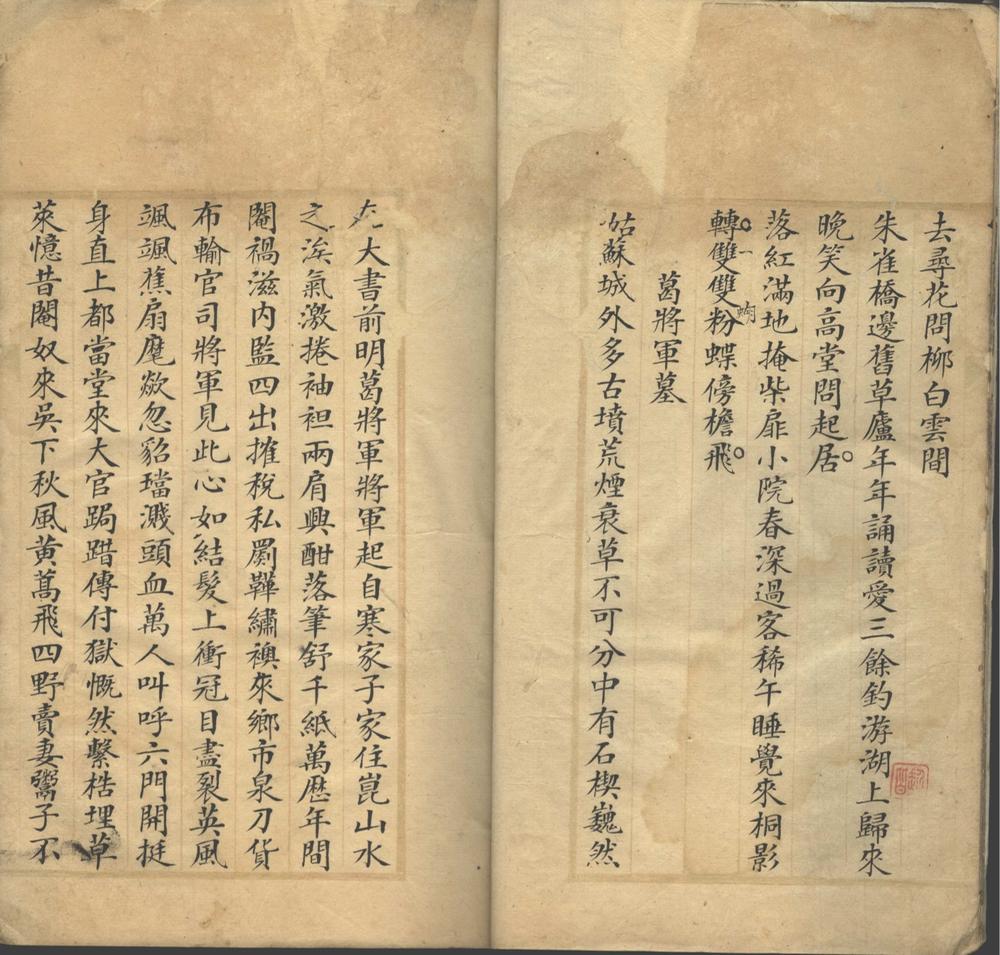 去尋花問柳白雲間
朱雀橋邊舊草廬年年誦讀愛三餘釣游湖上歸來
晚笑向高堂問起居
落紅滿地掩柴扉小院春深過客稀午睡覺來桐影
轉雙雙粉蝶傍檐飛
葛將軍墓
姑蘇城外多古墳荒煙衰草不可分中有石楔巍然
大書前明葛將軍將軍起自寒家子家住崑山水
之涘氣激捲袖袒兩肩興酣落筆舒千紙萬歷年間
閹禍滋內監四出搉稅私罽鞾繡襖來鄉市泉刀貨
布輸官司將軍見此心如結髮上衝冠目盡裂英風
颯颯蕉扇麾歘忽貂璫濺頭血萬人叫呼六門開挺
身直上都當堂來大官跼蹐傳付獄慨然繫梏埋草
萊憶昔閹奴來吳下秋風黃蒿飛四野賣妻鬻子不